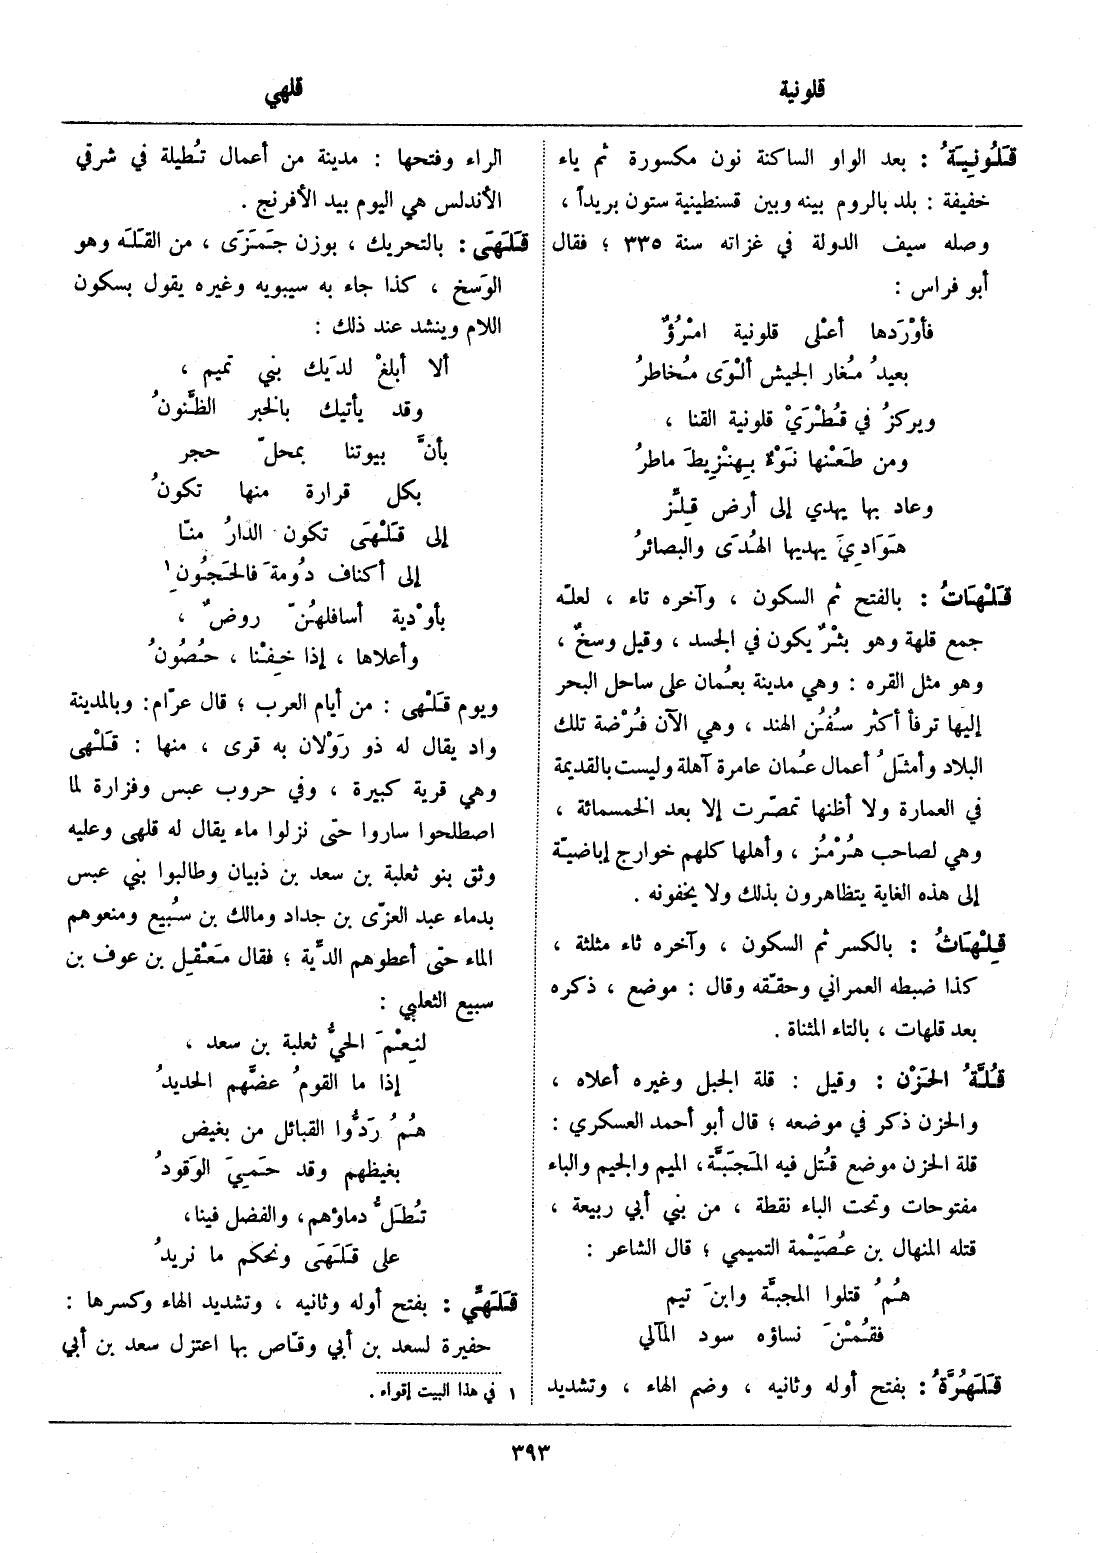 قلونية
قلهي
قَلُونِيَةُ : بعد الواو الساكنة نون مكسورة ثم ياء
خفيفة : بلد بالروم بينه وبين قسطنطينية ستون بريداً ،
وصله سيف الدولة في غزاته سنة ٣٣٥ ؛ فقال
أبو فراس :
فأوْرَدها أعْلى قلونية امْرُؤٌ
بعيدُ مُغار الجيش ألْوَى مُخاطرُ
ويركزُ في قُطْرَيْ قلونية القنا ،
ومن طَعْنها نَوْءٌ بِهِنْزِيطَ ماطرُ
وعاد بها يهدي إلى أرض قِلِّز
هَوَادِيَ يهديها الهُدَى والبصائرُ
قَلْهَاتُ : بالفتح ثم السكون ، وآخره تاء ، لعله
جمع قلهة وهو بثْرٌ يكون في الجسد ، وقيل وسخٌ ،
وهو مثل القره : وهي مدينة بعُمان على ساحل البحر
إليها ترفأ أكثر سُفُن الهند ، وهي الآن فُرْضة تلك
البلاد وأمثَلُ أعمال عُمان عامرة آهلة وليست بالقديمة
في العمارة ولا أظنها تمصّرت إلا بعد الخمسمائة ،
وهي لصاحب هُرْمُز ، وأهلها كلهم خوارج إباضيّة
إلى هذه الغاية يتظاهرون بذلك ولا يخفونه .
قِلْهَاثُ : بالكسر ثم السكون ، وآخره ثاء مثلثة ،
كذا ضبطه العمراني وحقّقه وقال : موضع ، ذكره
بعد قلهات ، بالتاء المثناة .
قُلَّةُ الحَزْن : وقيل : قلة الجبل وغيره أعلاه ،
والحزن ذكر في موضعه ؛ قال أبو أحمد العسكري :
قلة الحزن موضع قُتل فيه المَجَبَّة، الميم والجيم والباء
مفتوحات وتحت الباء نقطة ، من بني أبي ربيعة ،
قتله المنهال بن عُصَيْمة التميمي ؛ قال الشاعر :
هُمُ قتلوا المجبَّة وابنَ تيم
فقُمْنَ نساؤه سود المآلي
قَلَهُرَّةُ : بفتح أوله وثانيه ، وضم الهاء ، وتشديد
الراء وفتحها : مدينة من أعمال تُطيلة في شرقي
الأندلس هي اليوم بيد الأفرنج .
قَلَهَى : بالتحريك ، بوزن جَمَزَى ، من القَلَه وهو
الوَسخ ، كذا جاء به سيبويه وغيره يقول بسكون
اللام وينشد عند ذلك :
ألا أبلغْ لدَيك بني تميم ،
وقد يأتيك بالخبر الظَّنونُ
بأنَّ بيوتنا بمحلّ حجر
بكل قرارة منها تكونُ
إلى قَلْهَى تكون الدارُ منّا
إلى أكناف دُومةَ فالحَجُونِ١
بأوْدية أسافلهُنّ روضٌ ،
وأعلاها ، إذا خِفْنا ، حُصُونُ
ويوم قَلْهى : من أيام العرب ؛ قال عرّام: وبالمدينة
واد يقال له ذو رَوْلان به قرى ، منها : قَلْهى
وهي قرية كبيرة ، وفي حروب عبس وفزارة لما
اصطلحوا ساروا حتى نزلوا ماء يقال له قلهى وعليه
وثق بنو ثعلبة بن سعد بن ذبيان وطالبوا بني عبس
بدماء عبد العزّى بن جداد ومالك بن سُبيع ومنعوهم
الماء حتى أعطوهم الدَّية ؛ فقال مَعْقِل بن عوف بن
سبيع الثعلبي :
لنِعْمَ الحيُّ ثعلبة بن سعد ،
إذا ما القومُ عضَّهم الحديدُ
هُمُ رَدُّوا القبائل من بغيض
بغيظهم وقد حَمِيَ الوَقودُ
تُطَلُّ دماؤهم، والفضل فينا،
على قَلَهَى ونحكم ما نريدُ
قَلَهِّي : بفتح أوله وثانيه ، وتشديد الهاء وكسرها :
حفيرة لسعد بن أبي وقّاص بها اعتزل سعد بن أبي
١ في هذا البيت إقواء .
٣٩٣